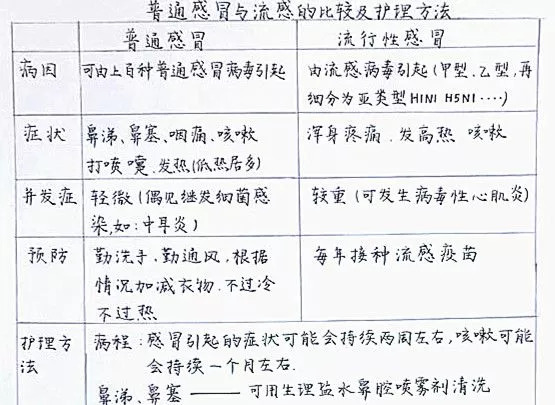 普通感冒与流感的比较及护理方法
普通感冒
流行性感冒
病因
可由上百种普通感冒病毒引起
由流感病毒引起(甲型、乙型,再
细分为亚类型H1N1 H5N1····)
症状
鼻涕、鼻塞、咽痛、咳嗽
打喷嚏、发热(低热居多)
浑身疼痛、发高热 咳嗽
并发症
轻微(偶见继发细菌感
染,如:中耳炎)
较重(可发生病毒性心肌炎)
预防
勤洗手、勤通风,根据
情况加减衣物、不过冷
不过热
每年接种流感疫苗
护理方
法
病程:感冒引起的症状可能会持续两周左右,咳嗽可能
会持续一个月左右.
鼻涕、鼻塞——可用生理盐水鼻腔喷雾剂清洗